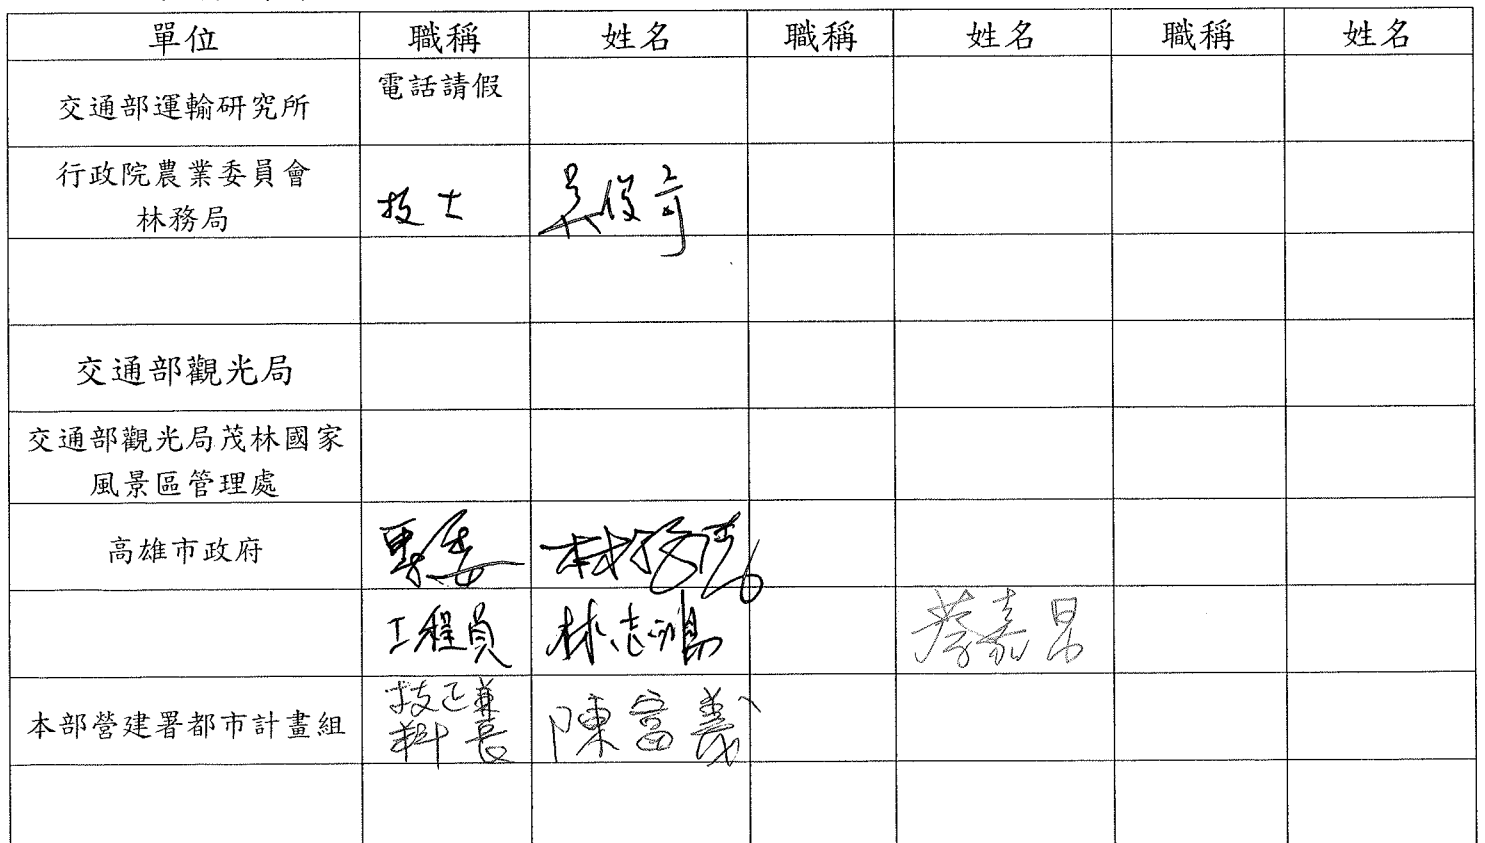 單位 職稱 姓名 職稱 姓名 職稱 姓名
交通部運輸研究所 電話請假
行政院農業委員會
林務局 技士 吳俊奇
交通部觀光局
交通部觀光局茂林國家
風景區管理處
高雄市政府
工程員 林志鴻 蔡嘉昂
本部營建署都市計畫組 技正兼
科長 陳富義